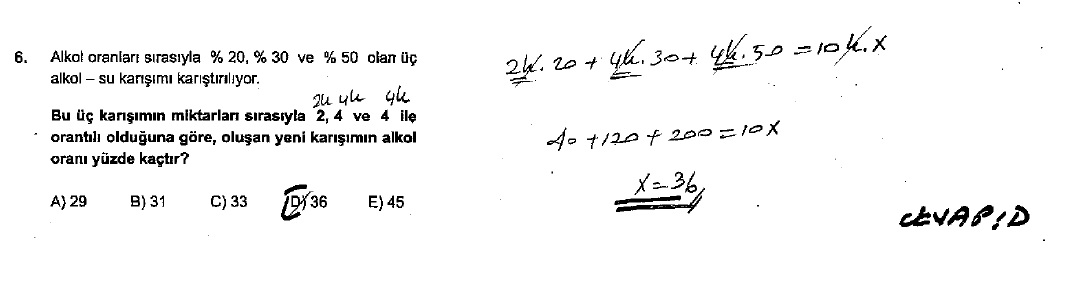 6. Alkol oranları sırasıyla % 20, % 30 ve % 50 olan üç
alkol – su karışımı karıştırılıyor.
2k 4k 4k
Bu üç karışımın miktarları sırasıyla 2, 4 ve 4 ile
orantılı olduğuna göre, oluşan yeni karışımın alkol
oranı yüzde kaçtır?
A) 29 B) 31 C) 33 D) 36 E) 45
2k. 20 + 4k. 30 + 4k. 50 = 10k. x
40 + 120 + 200 = 10x
x = 36
CEVAP: D